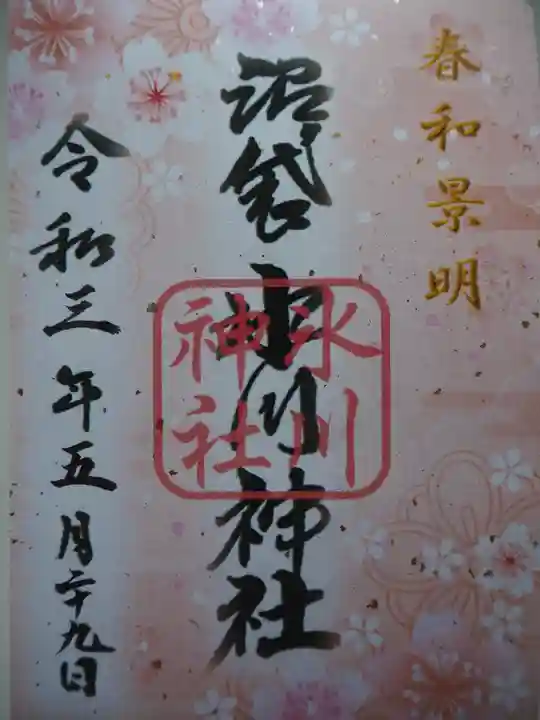 春和景明
沼袋氷川神社
氷川
神社
令和三年五月二十九日